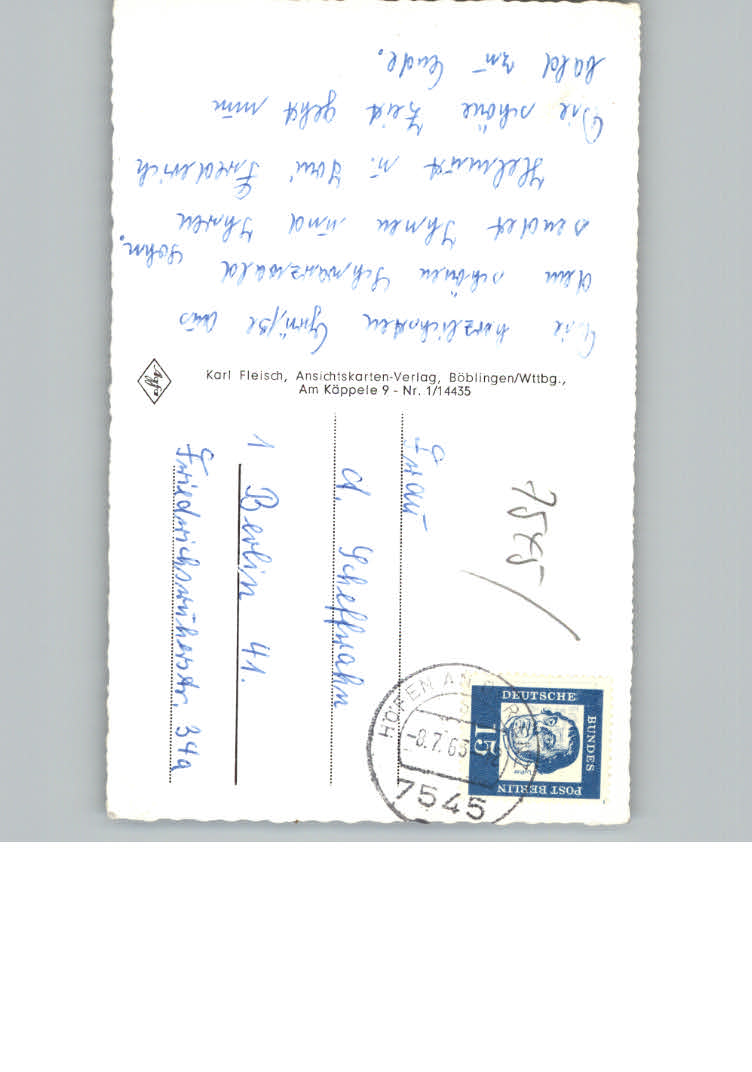 Die herzlichsten Grüße aus
dem schönen Schwarzwald
sendet Ihnen und Ihren Sohn.
Helmut u. Toni Friederich
Die schöne Zeit geht nun
bald zu Ende.
Agfa
Karl Fleisch, Ansichtskarten-Verlag, Böblingen/Wttbg.,
Am Käppele 9 - Nr. 1/14435
7545/
Frau
d. Scheffrahn
1 Berlin 41.
Friedrichsruherstr. 34a
HÖFEN AN
-8.7.63
7545
DEUTSCHE
BUNDES
POST BERLIN
15